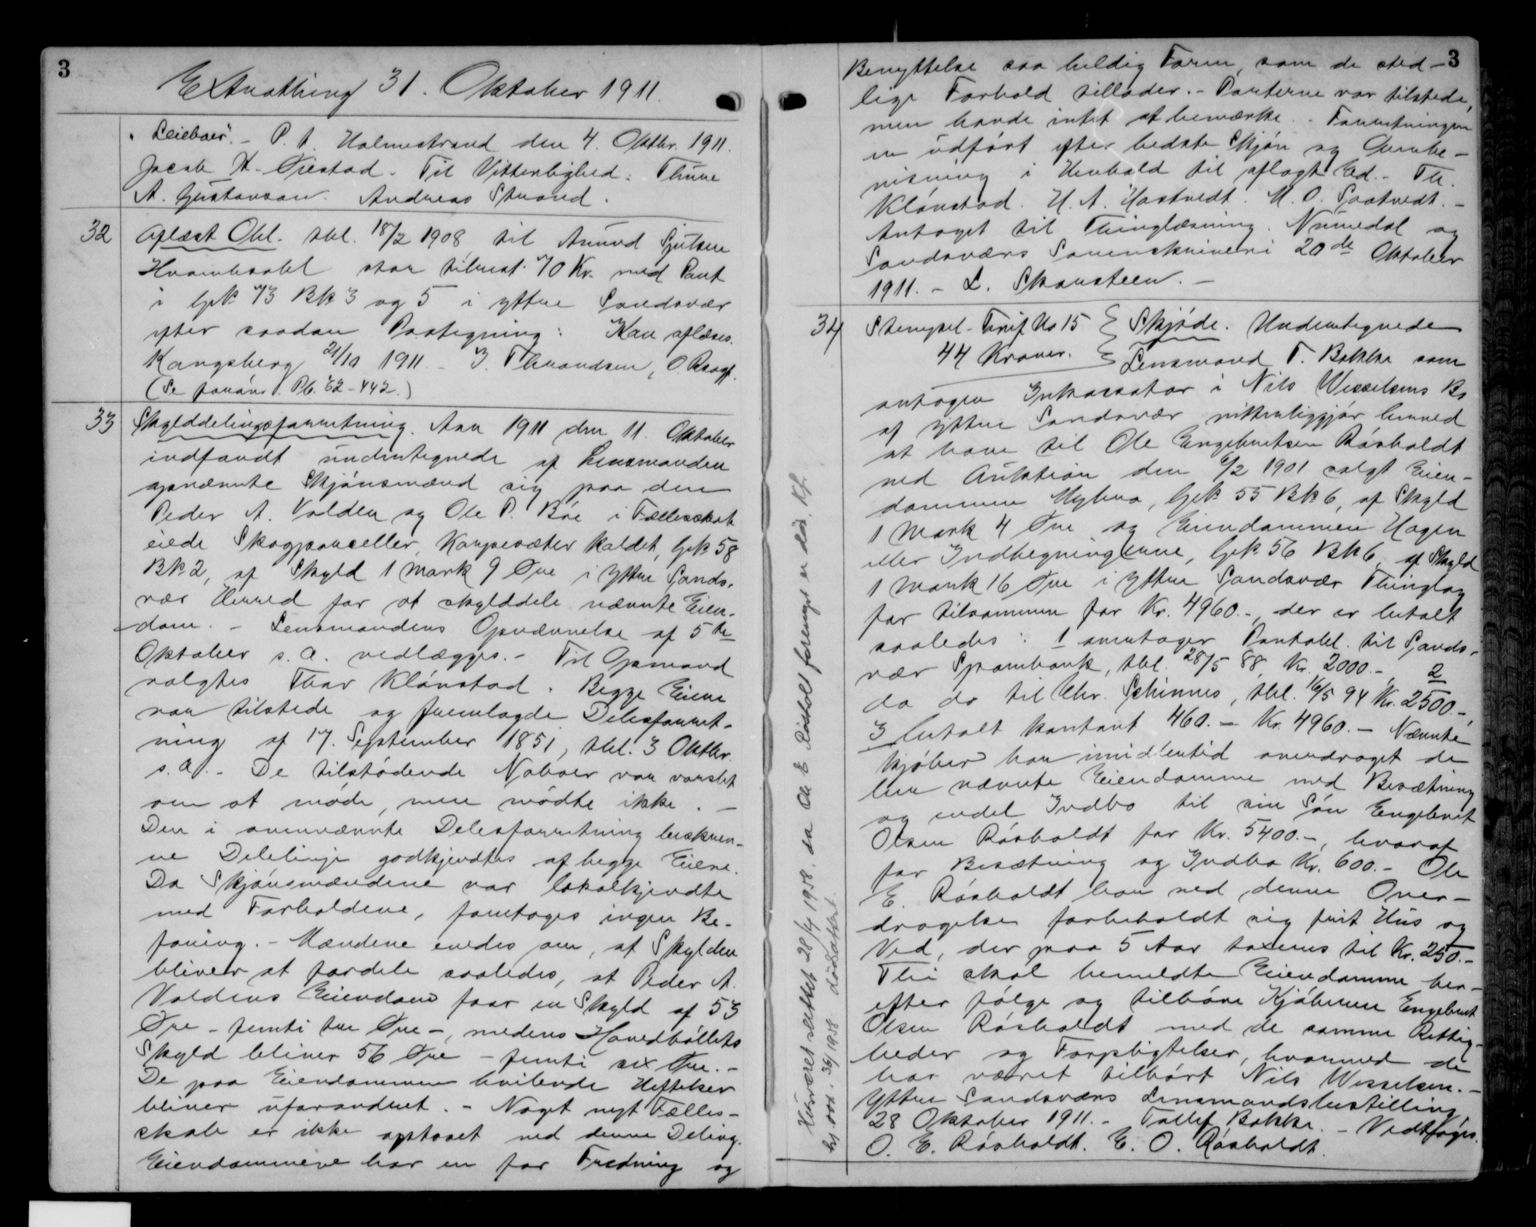 3
Extrathing 31. Oktober 1911.
"Leiebaer". - P. t. Holmestrand den 4. Oktbr. 1911.
Jacob H. Ørestad. Til Vitterlighed: Thune
A. Gustavson. Andreas Strand.
32 Aflæst Obl. tbl. 18/2 1908 til Amund Sjulsen
Hvambsahl stor tilrest. 70 Kr. med Pant
i Gpk 73 Bk 3 og 5 i Yttre Sandsvær
efter saadan Paategning: Kan aflæses.
Kongsberg 21/10 1911. J. Thrandsen, O Raage.
(Se forán Pb. 22-442.)
33 Skylddelingsforretning. Aar 1911 den 11. Oktober
indfandt undertegnede af Lensmanden
opnævnte Skjønsmænd sig paa den
Peder A. Volden og Ole P. Bøe i Fællesskab
eiede Skogparceller, Kongesæter kaldet, Gpk 58
Bk 2, af Skyld 1 Mark 9 Øre i Yttre Sands-
vær Herred for at skylddele nævnte Eien-
dom. - Lensmandens Opnævnelse af 5te
Oktober s. a. vedlægges. - Til Opmand
valgtes Thor Klønstad. Begge Eiere
var tilstede og fremlagde Delesforret-
ning af 17. September 1851, tbl. 3 Oktbr.
s. A. - De tilstødende Naboer var varslet
om at møde, men mødte ikke. -
Den i ovennævnte Delesforretning beskrev-
ne Delelinje godkjendtes af begge Eiere.
Da Skjønsmændene var lokalkjendte
med Forholdene, foretoges ingen Be-
faring. - Mændene enedes om, at Skylden
bliver at fordele saaledes, at Peder A.
Voldens Eiendom faar en Skyld af 53
Øre - femti tre Øre -, medens Hovedbøllets
Skyld bliver 56 Øre - femti sex Øre. -
De paa Eiendommen hvilende Heftelser
bliver uforandret. - Noget nyt Fælles-
skab er ikke opstaaet ved denne Deling.
Eiendommene har en for Fredning og
3
Benyttelse saa heldig Form, som de sted-
lige Forhold tillader. - Parterne var tilstede,
men havde intet at bemærke. - Forretningen
er udført efter bedste Skjøn og Overbe-
visning i Henhold til aflagt Ed. - Th.
Klønstad. H. A. Hostvedt. M. O. Saatvedt. -
Antaget til Thinglæsning. Numedal og
Sandsværs Sorenskriveri 20de Oktober
1911. - L. Skansteen. -
34 Stempel-Tarif No 15 Skjøde. Undertegnede
44 Kroner. Lensmand T. Bakke som
antagen Inkassator i Nils Wesselsens Bo
af Yttre Sandsvær vitterliggjør herved
at have til Ole Engebretsen Råsholdt
ved Auktion den 6/2 1901 solgt Eien-
dommen Myhra, Gpk 55 Bk 6, af Skyld
1 Mark 4 Øre og Eiendommen Hagen
eller Indhegningerne, Gpk 56 Bk 6 af Skyld
1 Mark 16 Øre i Yttre Sandsvær Thinglag
for tilsammen for Kr. 4960. -, der er betalt
saaledes: 1 overtager Pantobl. til Sands-
vær Sparebank, tbl. 28/5 88, Kr. 2000. -, 2
do do til Chr. Schinnes, tbl. 16/5 94 Kr. 2500. -,
3 betalt kontant 460. - Kr. 4960. - Nævnte
Kjøber har imidlertid overdraget de
her nævnte Eiendomme med Besætning
og endel Indbo til sin Søn Engebret
Olsen Råsholdt for Kr. 5400. -, hvoraf
for Besætning og Indbo Kr. 600. - Ole
E. Råsholdt har ved denne Over-
dragelse forbeholdt sig frit Hus og
Ved, der paa 5 Aar taxeres til Kr. 250. -
Thi skal bemeldte Eiendomme her-
efter følge og tilhøre Kjøberen Engebret
Olsen Råsholdt med de samme Rettig-
heder og Forpligtelser, hvormed de
har været tilhørt Nils Wesselsen. -
Yttre Sandsværs Lensmandsbestilling
28 Oktober 1911. - Tollef Bakke. - Vedtages.
O. E. Råsholdt. E. O. Råsholdt.
slettet 28/4 1958, da Ole E. Råsholt forlengst er død. Kf.